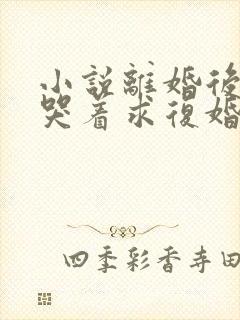 小說離婚後
哭着求復婚
四季彩香寺田